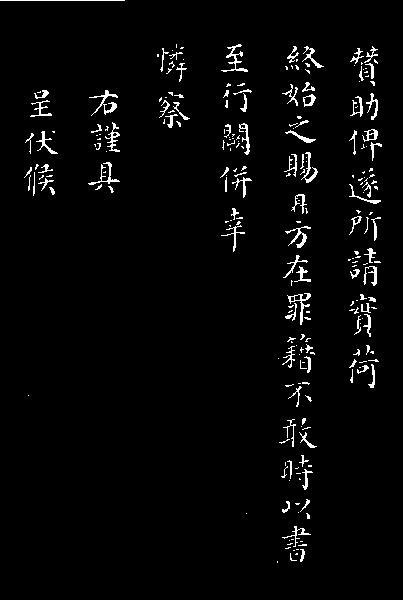 贊助俾遂所請實荷
終始之賜鼎方在罪籍不敢時以書
至行闕併幸
憐察
右謹具
呈伏候